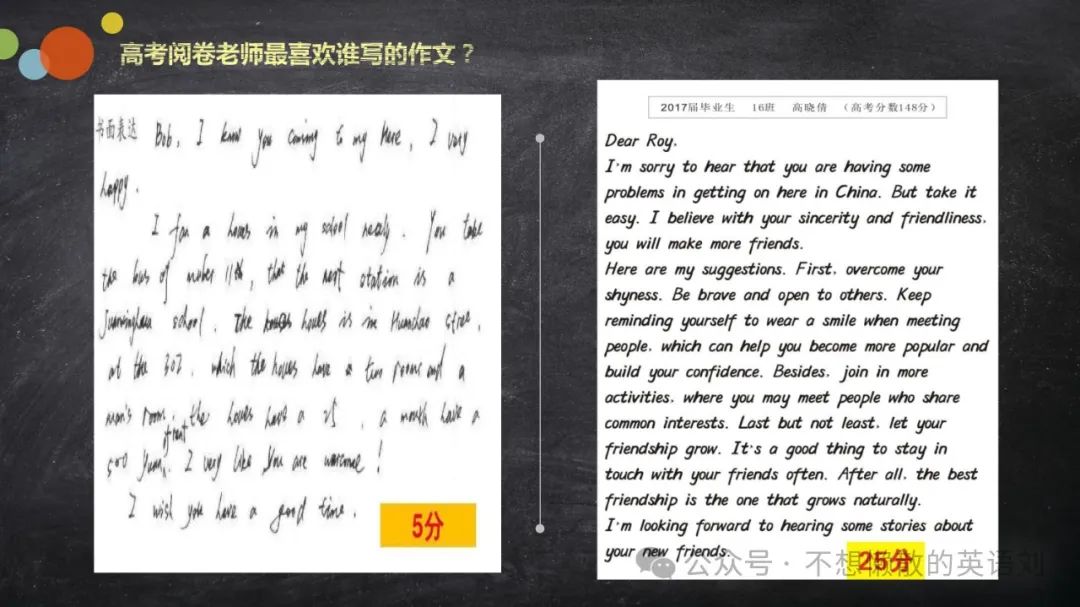 高考阅卷老师最喜欢谁写的作文？
书面表达 Bob, I know you coming to my here, I very
happy.
I fan a houes in my school nearly. You take
the bus of nuber 11th, that the next station is a
school. The houes is in Humihao stree,
at the 302. which the houes have a two rooms and a
man's room. the houes have a 25, a month have a
500 Yuan. I very like you are warcome!
I wish you have a good time.
5分
2017届毕业生 16班 高晓倩 （高考分数148分）
Dear Roy,
I'm sorry to hear that you are having some
problems in getting on here in China. But take it
easy. I believe with your sincerity and friendliness,
you will make more friends.
Here are my suggestions. First, overcome your
shyness. Be brave and open to others. Keep
reminding yourself to wear a smile when meeting
people, which can help you become more popular and
build your confidence. Besides, join in more
activities, where you may meet people who share
common interests. Last but not least, let your
friendship grow. It's a good thing to stay in
touch with your friends often. After all, the best
friendship is the one that grows naturally.
I'm looking forward to hearing some stories about
your new friends.
25分
公众号·不想懒散的英语刘